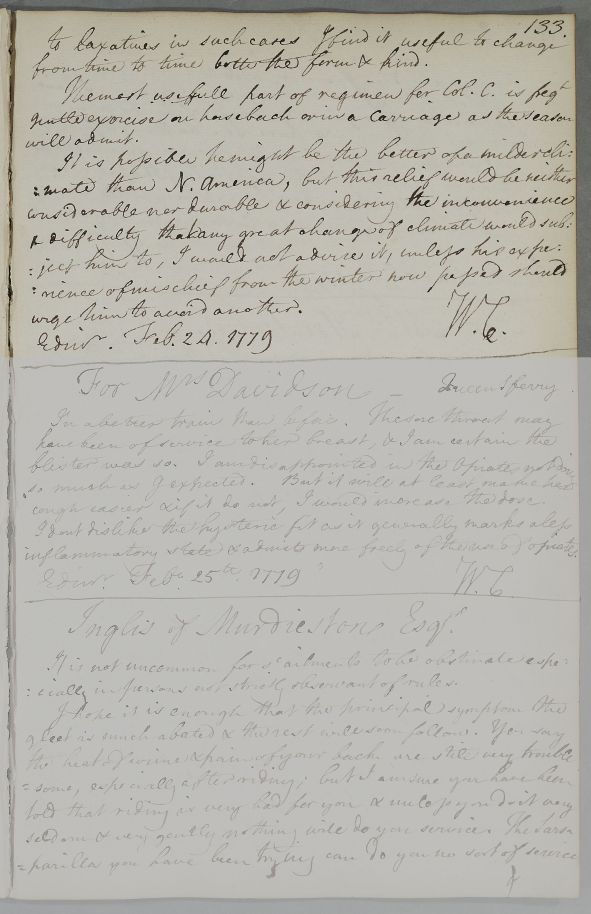 133.
to laxatives in such cases I find it useful to change
from time to time both the form & kind.
The most usefull part of regimen for Col. C. is feqt
gentle exercise on horseback or in a Carriage as the season
will admit.
It is possible he might be the better of a milder cli:
:mate than N. America, but this relief would be neither
considerable nor durable & considering the inconvenience
& difficulty that any great change of climate would sub:
:ject him to, I would not advise it, unless his expe:
:rience of mischief from the winter now passed should
urge him to avoid another.
Edinr. Feb. 24. 1779 W.C.
For Mrs Davidson — Queensferry
In a better train than before. The sore throat may
have been of service to her breast, & I am certain the
blister was so. I am disappointed in the Opiate not doing
so much as I expected. But it will at least make her
cough easier & if it do not, I would increase the dose.
I dont dislike the hysteric fit as it generally marks a less
inflammatory state & admits more freely of the use of opiate.
Edinr. Feby. 25th 1779 W.C.
Inglis of Murdiestone Esqr.
It is not uncommon for sc ailments to be obstinate espe:
:cially in persons not strictly observant of rules.
I hope it is enough that the principal symptom the
gleet is much abated & the rest will soon follow. You say
the heat of urine & pain of your back are still very trouble
=some, especially after riding; but I am sure you have been
told that riding is very bad for you & unless you do it very
seldom & very gently nothing will do you service. The Sarsa
=parilla you have been trying can do you no sort of service